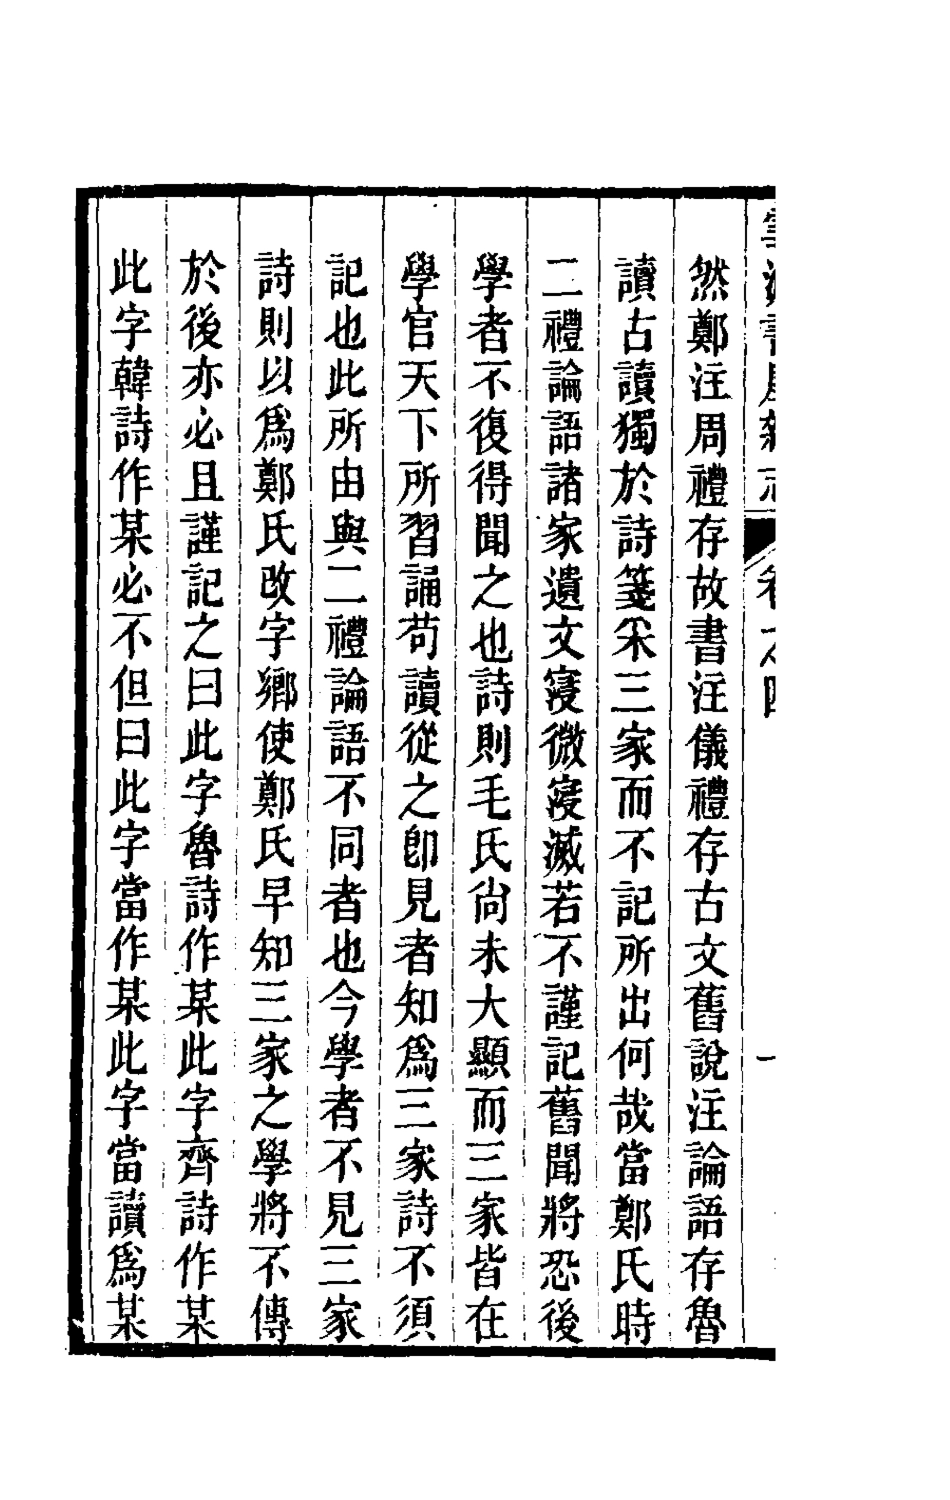 然鄭注周禮存故書注儀禮存古文舊說注論語存魯
讀古讀獨於詩箋采三家而不記所出何哉當鄭氏時
二禮論語諸家遺文寖微寖滅若不謹記舊聞將恐後
學者不復得聞之也詩則毛氏尙未大顯而三家皆在
學官天下所習誦苟讀從之卽見者知爲三家詩不須
記也此所由與二禮論語不同者也今學者不見三家
詩則以爲鄭氏改字鄉使鄭氏早知三家之學將不傳
於後亦必且謹記之曰此字魯詩作某此字齊詩作某
此字韓詩作某必不但曰此字當作某此字當讀爲某